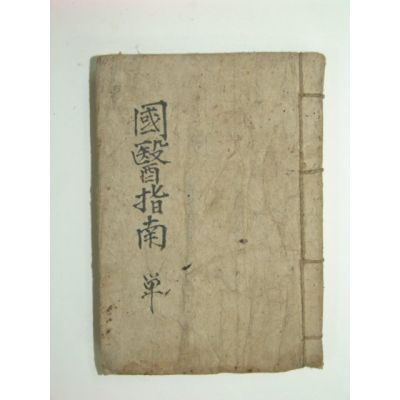 國醫指南 单